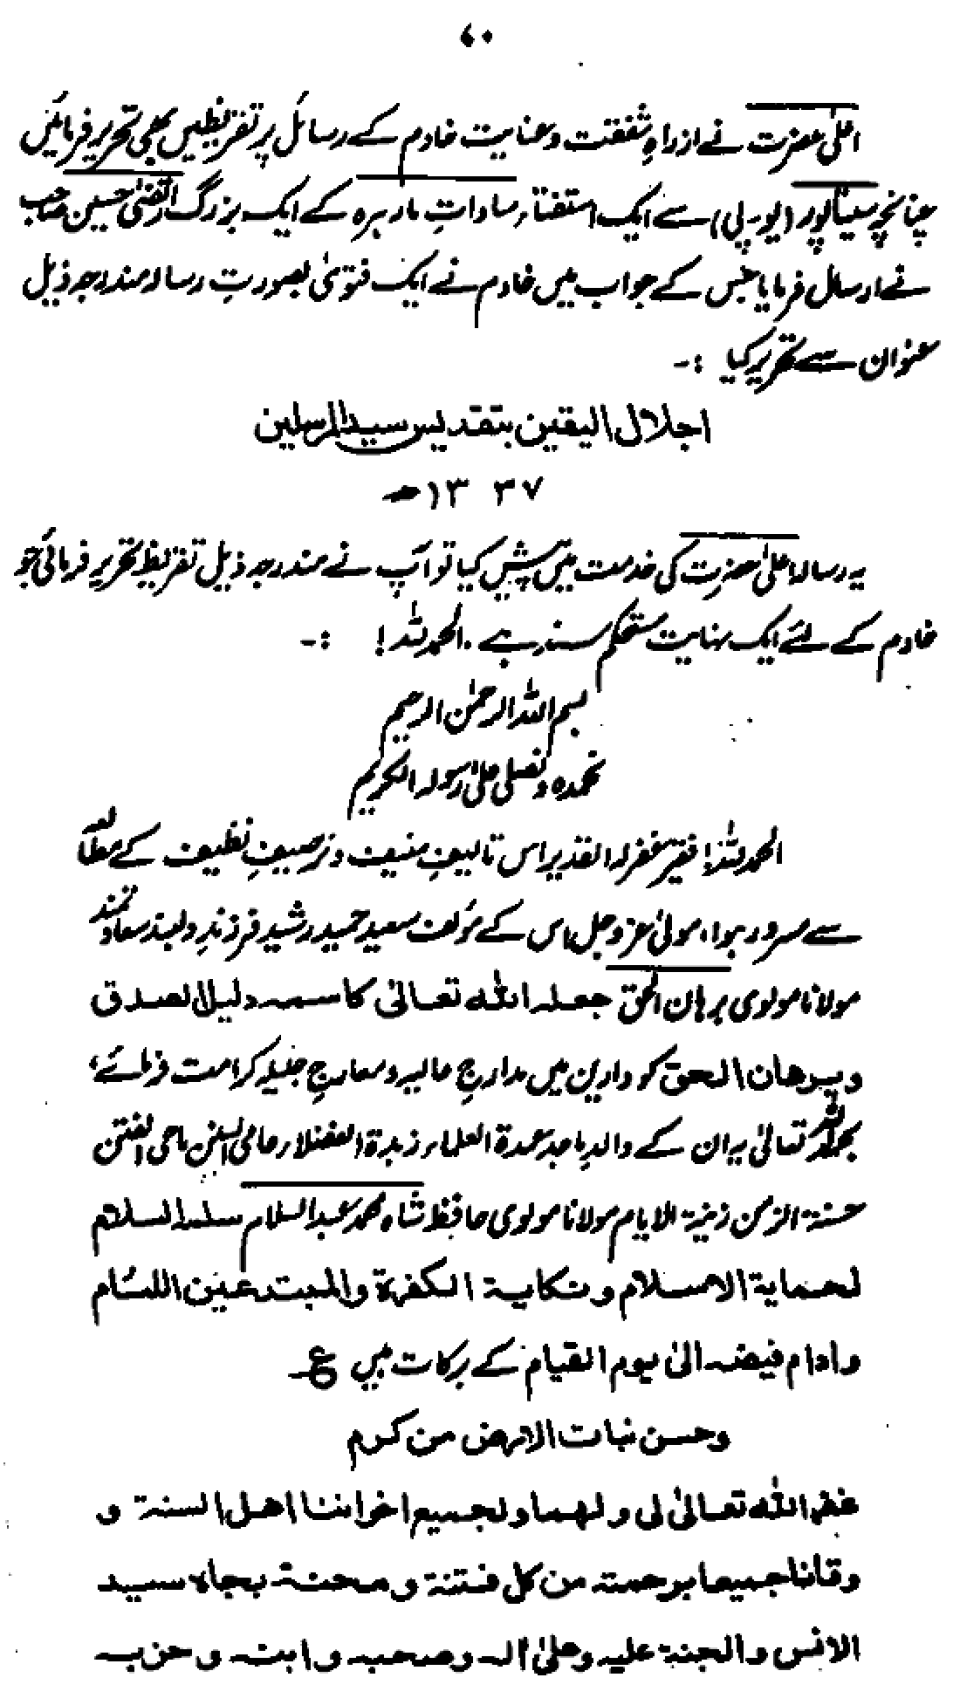 ۷۰
اعلیٰ حضرت نے از راہِ شفقت و عنایت خادم کے رسائل پر تقریظیں بھی تحریر فرمائیں
چنانچہ سیتاپور (یو۔پی) سے ایک استفتاء سادات مارہرہ کے ایک بزرگ ارتضیٰ حسین صاحب
نے ارسال فرمایا جس کے جواب میں خادم نے ایک فتویٰ بصورتِ رسالہ مندرجہ ذیل
عنوان سے تحریر کیا :۔
اجلال الیقین بتقدیس سید المرسلین
۱۳ ۳۷ ھ
یہ رسالہ اعلیٰ حضرت کی خدمت میں پیش کیا تو آپ نے مندرجہ ذیل تقریظ تحریر فرمائی جو
خادم کے لئے ایک نہایت مستحکم سند ہے ۔ الحمد للہ ! :۔
بسم اللہ الرحمٰن الرحیم
نحمدہ و نصلی علیٰ رسولہ الکریم
الحمد للہ! فقیر غفرلہ القدیر اس تالیفِ منیف و ترصیفِ نظیف کے مطالعہ
سے مسرور ہوا، مولیٰ عزوجل اس کے مؤلف سعید حمید رشید فرزندِ دلبند سعادتمند
مولانا مولوی برہان الحق جعلہ اللہ تعالیٰ کاسمہ دلیل الصدق
وبرھان الحق کو دارین میں مدارجِ عالیہ و معارجِ جلیلہ کرامت فرمائے،
بحمد اللہ تعالیٰ یہ ان کے والدِ ماجد عمدۃ العلماء زبدۃ الفضلاء حامی السنن ماحی الفتن
حسنۃ الزمن زینۃ الایام مولانا مولوی حافظ شاہ محمد عبد السلام سلمہ السلام
لحمایۃ الاسلام ونکایۃ الکفرۃ والمبتدعین اللئام
وادام فیضہ الیٰ یوم القیام کے برکات میں ع
وحسن نبات الارض من کرم
غفر اللہ تعالیٰ لی ولھما ولجمیع اخواننا اھل السنۃ و
وقانا جمیعا برحمتہ من کل فتنۃ ومحنۃ بجاہ سید
الانس والجنۃ علیہ وعلیٰ اٰلہ وصحبہ وابنہ وحزبہ